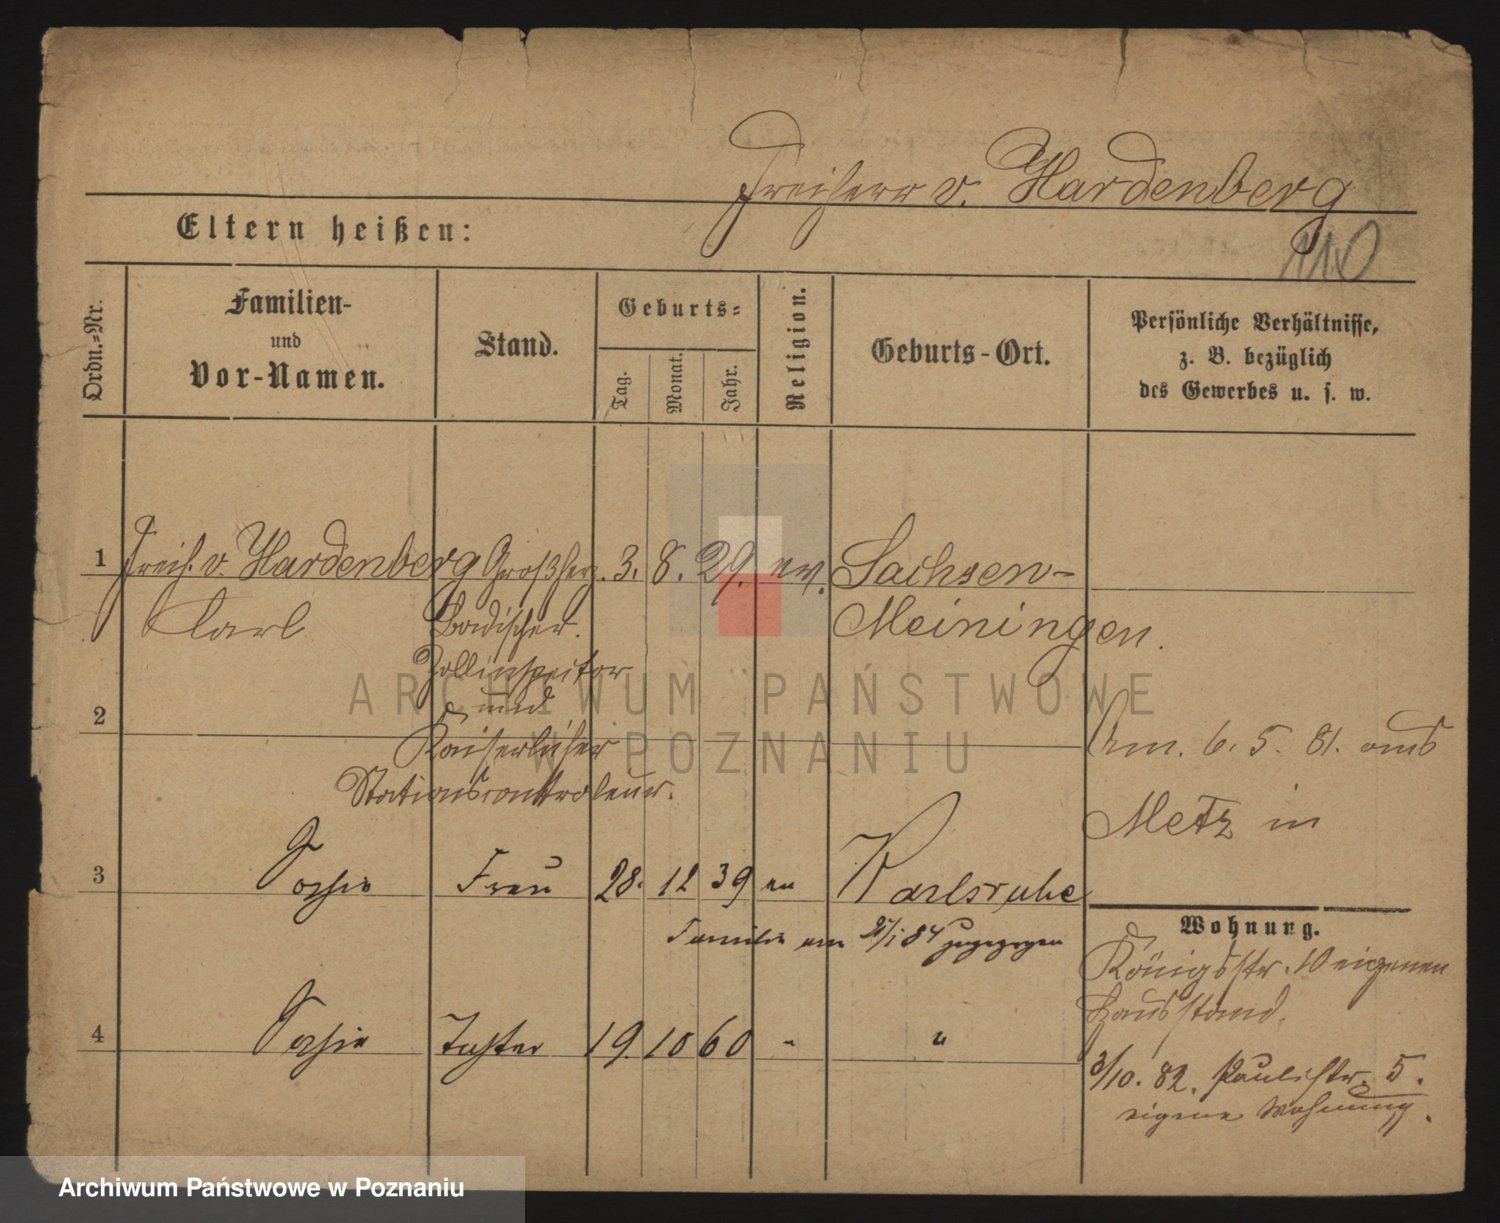 Freiherr v. Hardenberg
Eltern heißen:
110
Ordn.-Nr.
Familien-
und
Vor-Namen.
Stand.
Geburts-
Tag.
Monat.
Jahr.
Religion.
Geburts-Ort.
Persönliche Verhältnisse,
z. B. bezüglich
des Gewerbes u. s. w.
1 Freih. v. Hardenberg Großherz. 3. 8. 29. ev. Sachsen-
Carl Badischer Meiningen.
Zollinspektor
2 und
Kaiserlicher
Stationskontroleur.
Am. 6. 5. 81. aus
Metz in
3 Sophie Frau 28. 12 39 ev Karlsruhe
Familie am /1 84 zugezogen
4 Sophie Tochter 19 10 60 " "
Wohnung.
Königsstr. 10 eigenen
Hausstand.
3/10. 82. Paulistr. 5.
eigene Wohnung.
ARCHIWUM PAŃSTWOWE
W POZNANIU
Archiwum Państwowe w Poznaniu